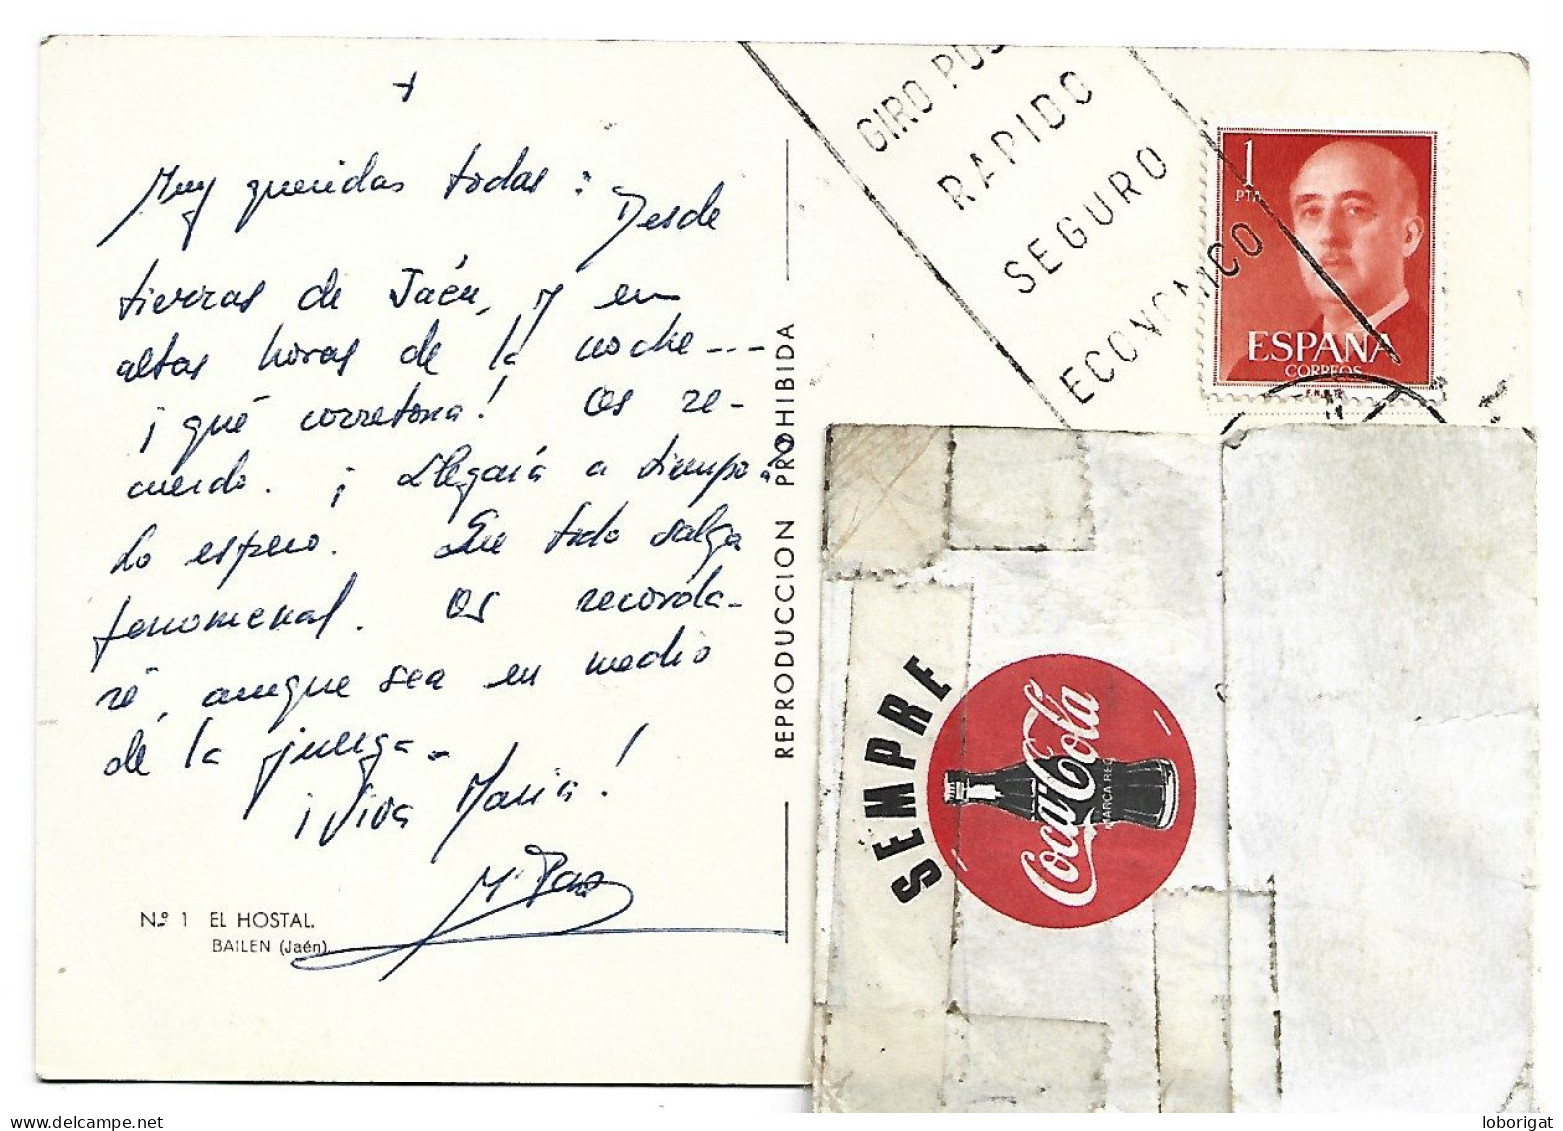 +
Muy queridas todas: Desde
tierras de Jaén, y en
altas horas de la noche---
¡qué corretona! Os re-
cuerdo. ¡Llegará a tiempo?
Lo espero. Que todo salga
fenomenal. Os recorda-
ré, aunque sea en medio
de la juerga.
¡Viva María!
Mª Paz
N.º 1 EL HOSTAL.
BAILEN (Jaén)
REPRODUCCION PROHIBIDA
GIRO POS
RAPIDO
SEGURO
ECONOMICO
1
PTA
ESPAÑA
CORREOS
F.N.M.T.
SEMPRE
Coca-Cola
MARCA REG
delcampe.net
loborigat